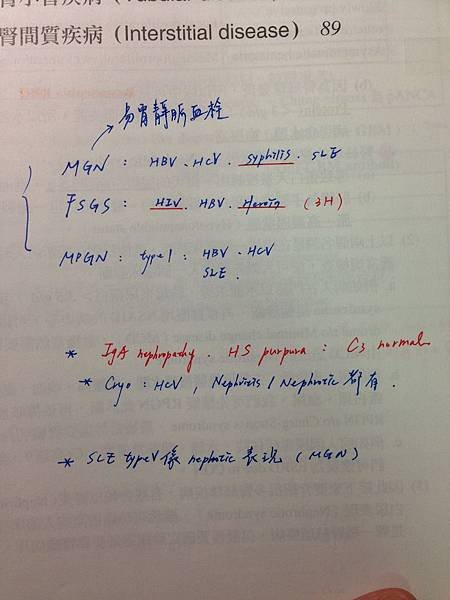 腎間質疾病 (Interstitial disease) 89
易腎靜脈血栓
MGN : HBV、HCV、syphilis、SLE
FSGS : HIV、HBV、Heroin (3H)
MPGN : type I : HBV、HCV
SLE.
* IgA nephropathy . HS purpura : C3 normal
* Cryo : HCV , Nephritis / Nephrotic 都有.
* SLE type V 像 nephrotic 表現 (MGN)